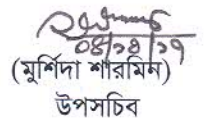 (মুর্শিদা শারমিন)
উপসচিব